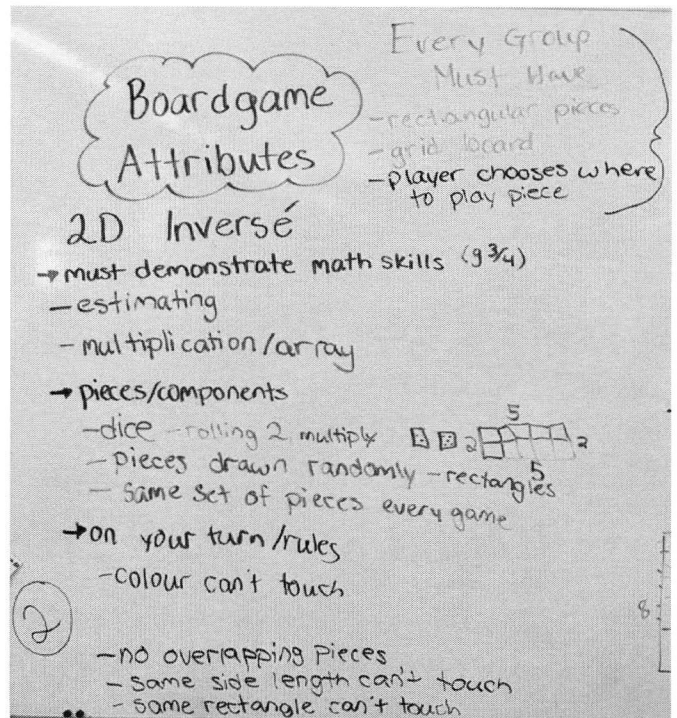 Boardgame
Attributes
Every Group
Must Have
-rectangular pieces
-grid board
-player chooses where
to play piece
2D Inversé
→must demonstrate math skills (g 3/4)
-estimating
-multiplication/array
→pieces/components
-dice -rolling 2 multiply 2 5 2
-pieces drawn randomly -rectangles 5
-same set of pieces every game
→on your turn/rules
-colour can't touch
8
2
-no overlapping pieces
-same side length can't touch
-same rectangle can't touch